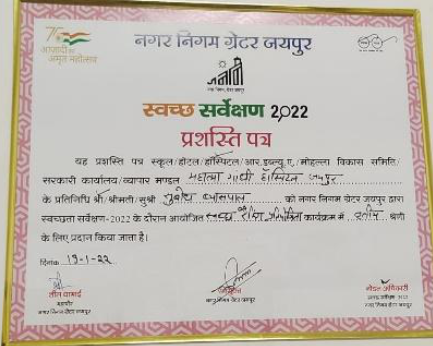 75
आज़ादी का
अमृत महोत्सव
नगर निगम ग्रेटर जयपुर
स्वच्छ सर्वेक्षण 2022
प्रशस्ति पत्र
यह प्रशस्ति पत्र स्कूल/होटल/हॉस्पिटल/आर.डब्ल्यू.ए./मोहल्ला विकास समिति/
सरकारी कार्यालय/व्यापार मण्डल महात्मा गांधी हॉस्पिटल जयपुर
के प्रतिनिधि श्री/श्रीमती/सुश्री को नगर निगम ग्रेटर जयपुर द्वारा
स्वच्छता सर्वेक्षण-2022 के दौरान आयोजित स्वच्छ रैंकिंग प्रतियोगिता कार्यक्रम में श्रेणी
के लिए प्रदान किया जाता है।
दिनांक 19-1-22
महापौर
नगर निगम ग्रेटर जयपुर
आयुक्त
नगर निगम ग्रेटर जयपुर
नोडल अधिकारी
नगर निगम ग्रेटर जयपुर